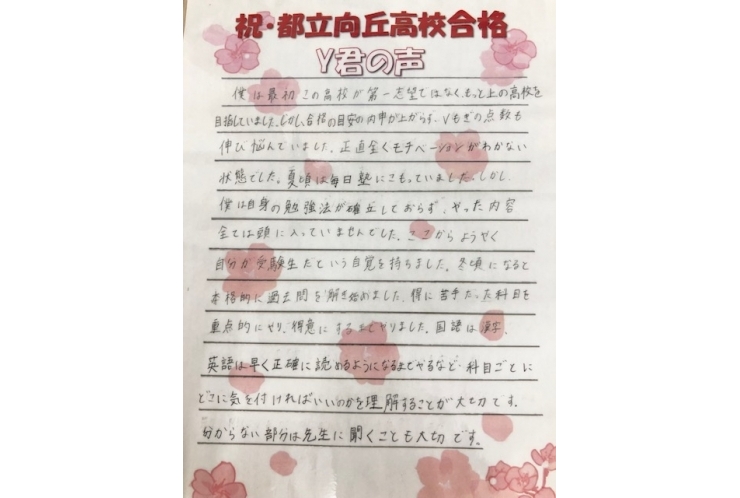 祝・都立向丘高校合格
Y君の声
僕は最初この高校が第一志望ではなく、もっと上の高校を
目指していました。しかし、合格の目安の内申が上がらず、Vもぎの点数も
伸び悩んでいました。正直全くモチベーションがわかない
状態でした。夏頃は毎日塾にこもっていました。しかし、
僕は自身の勉強法が確立しておらず、やった内容
全ては頭に入っていませんでした。ここからようやく
自分が受験生だという自覚を持ちました。冬頃になると
本格的に過去問を解き始めました。得に苦手だった科目を
重点的にやり、得意にするまでやりました。国語は漢字、
英語は早く正確に読めるようになるまでやるなど、科目ごとに
どこに気を付ければいいのかを理解することが大切です。
分からない部分は先生に聞くことも大切です。